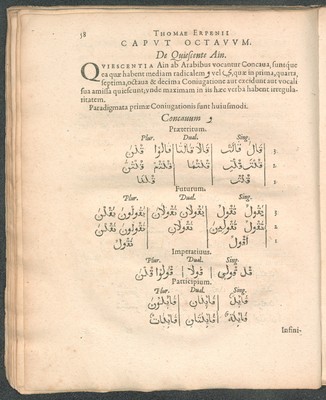 58 THOMAE ERPENII
CAPUT OCTAVUM.
De Quiescente Ain.
QUIESCENTIA Ain ab Arabibus vocantur Concava, suntque
ea quæ habent mediam radicalem و vel ي, quæ in prima, quarta,
septima, octava & decima Coniugatione aut excidunt aut vocali
sua amissa quiescunt, unde maximam in iis hæc verba habent irregula-
ritatem.
Paradigmata primæ Coniugationis sunt huiusmodi.
Concavum و
Præteritum.
Plur. Dual. Sing.
قَالَ قَالَتْ قَالَا قَالَتَا قَالُوا قُلْنَ 3
قُلْتَ قُلْتِ قُلْتُمَا قُلْتُمْ قُلْتُنَّ 2
قُلْتُ قُلْنَا
Futurum.
Plur. Dual. Sing.
يَقُولُ تَقُولُ يَقُولَانِ تَقُولَانِ يَقُولُونَ يَقُلْنَ 3
تَقُولُ تَقُولِينَ تَقُولَانِ تَقُولُونَ تَقُلْنَ 2
أَقُولُ نَقُولُ 1
Imperativus.
Plur. Dual. Sing.
قُلْ قُولِي قُولَا قُولُوا قُلْنَ
Participium.
Plur. Dual. Sing.
قَايِلٌ قَايِلَانِ قَايِلُونَ
قَايِلَةٌ قَايِلَتَانِ قَايِلَاتٌ
Infini-